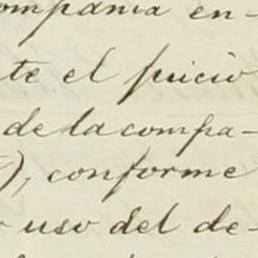 ompania en-
te el juicio
de la compa-
), conforme
uso del de-